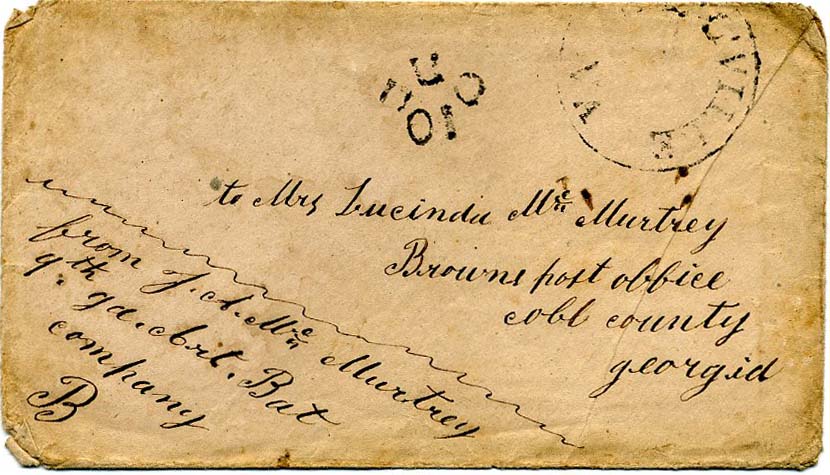 VILLE VA
10
to Mrs Lucinda Mc Murtrey
Browns post office
cobb county
georgia
from J. A. Mc Murtrey
9th ga. Art. Bat
company
B